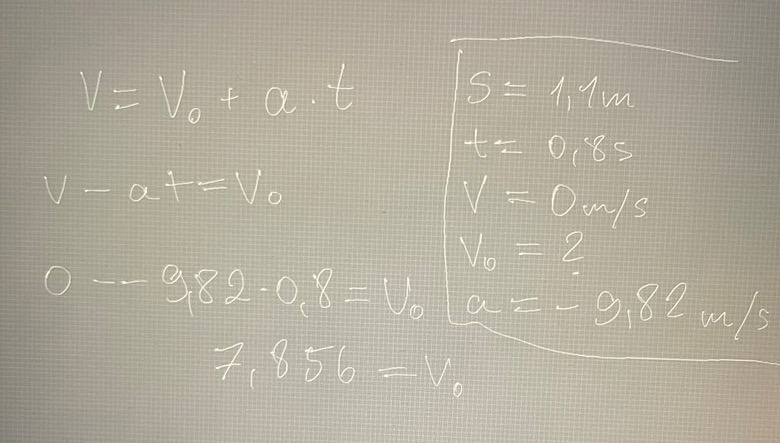 V = V₀ + a · t
V - at = V₀
0 - - 9,82 · 0,8 = V₀
7,856 = V₀
S = 1,1m
t = 0,8s
V = 0m/s
V₀ = ?
a = - 9,82 m/s